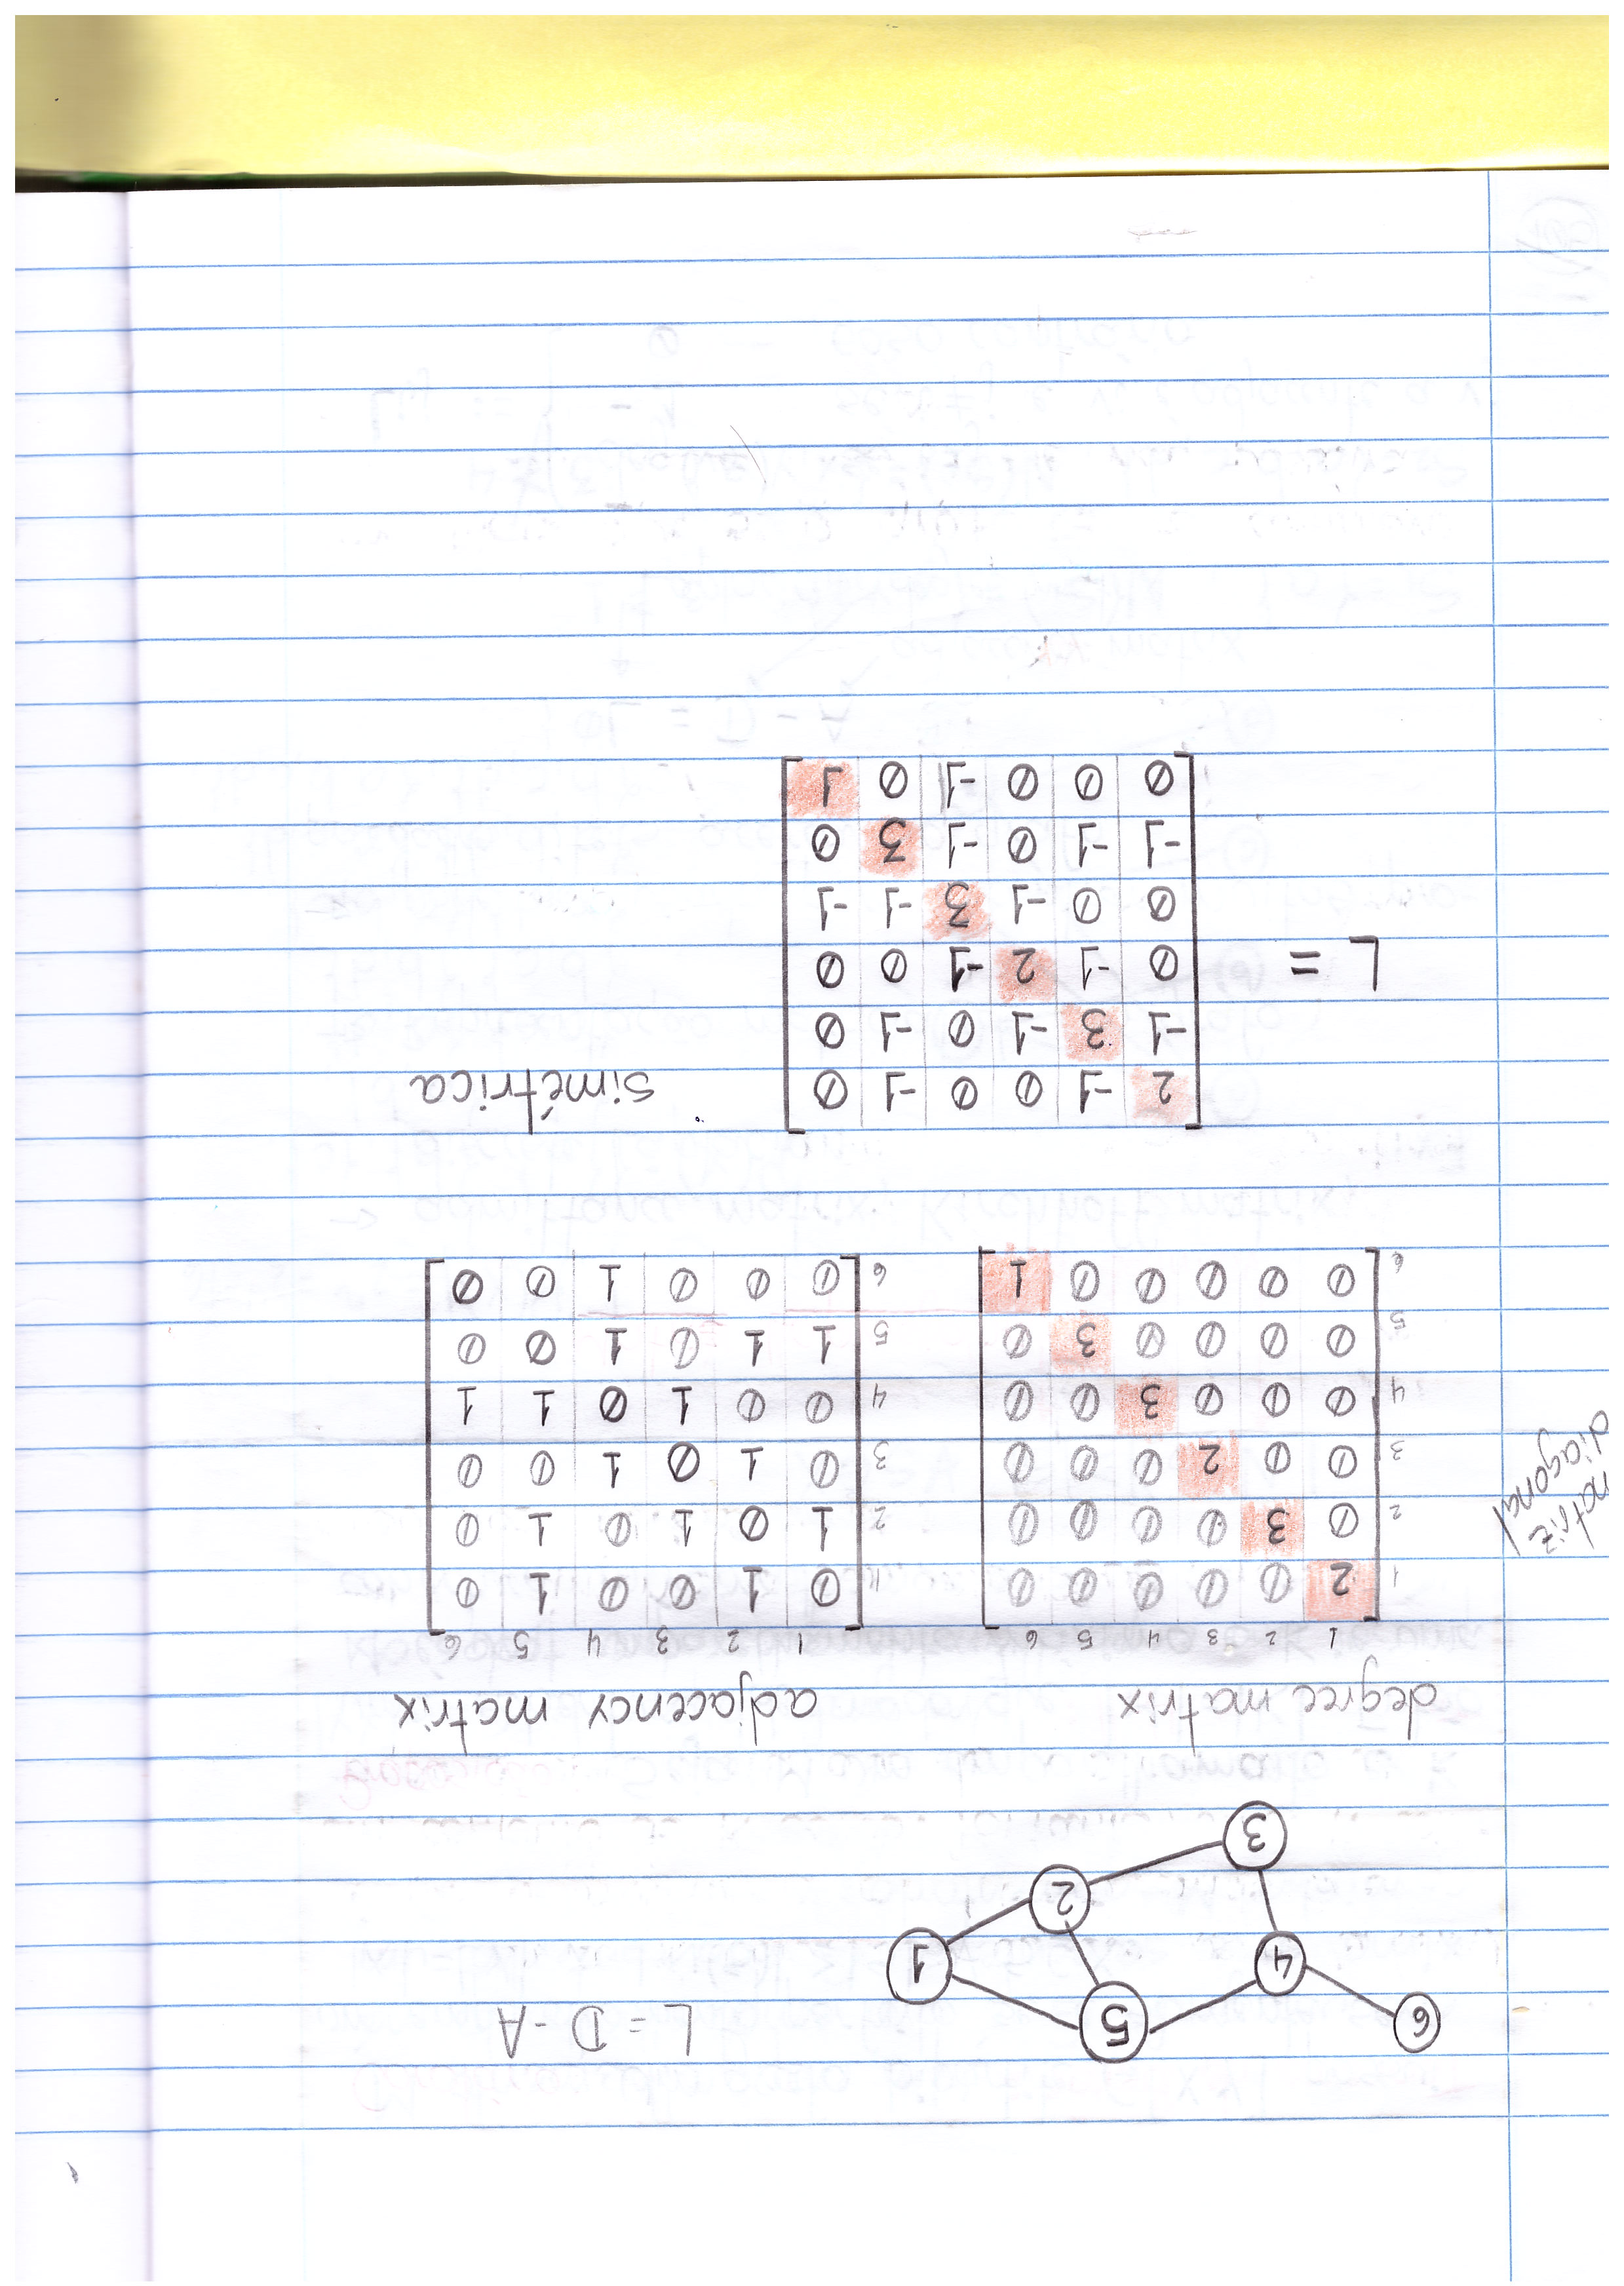 6 5 1 4 2 3
L = D - A
degree matrix
adjacency matrix
1 2 3 4 5 6
1 2 0 0 0 0 0
2 0 3 0 0 0 0
3 0 0 2 0 0 0
4 0 0 0 3 0 0
5 0 0 0 0 3 0
6 0 0 0 0 0 1
matriz
diagonal
1 2 3 4 5 6
1 0 1 0 0 1 0
2 1 0 1 0 1 0
3 0 1 0 1 0 0
4 0 0 1 0 1 1
5 1 1 0 1 0 0
6 0 0 0 1 0 0
L =
2 -1 0 0 -1 0
-1 3 -1 0 -1 0
0 -1 2 -1 0 0
0 0 -1 3 -1 -1
-1 -1 0 -1 3 0
0 0 0 -1 0 1
simétrica